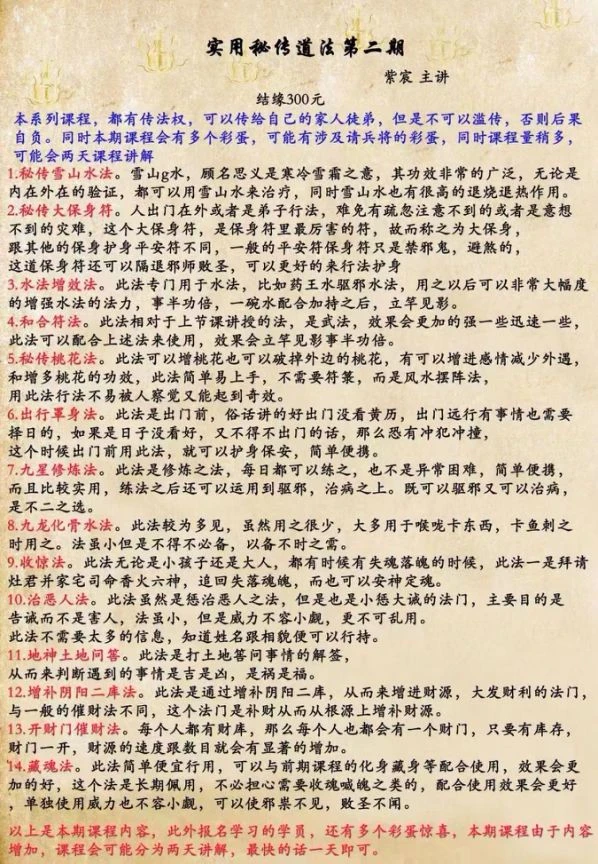 实用秘传道法第二期
紫宸 主讲
结缘300元
本系列课程，都有传法权，可以传给自己的家人徒弟，但是不可以滥传，否则后果
自负。同时本期课程会有多个彩蛋，可能有涉及请兵将的彩蛋，同时课程量稍多，
可能会两天课程讲解
1.秘传雪山水法。雪山g水，顾名思义是寒冷雪霜之意，其功效非常的广泛，无论是
内在外在的验证，都可以用雪山水来治疗，同时雪山水也有很高的退烧退热作用。
2.秘传大保身符。人出门在外或者是弟子行法，难免有疏忽注意不到的或者是意想
不到的灾难，这个大保身符，是保身符里最厉害的符，故而称之为大保身，
跟其他的保身护身平安符不同，一般的平安符保身符只是禁邪鬼，避煞的，
这道保身符还可以隔退邪师败圣，可以更好的来行法护身
3.水法增效法。此法专门用于水法，比如药王水驱邪水法，用之以后可以非常大幅度
的增强水法的法力，事半功倍，一碗水配合加持之后，立竿见影。
4.和合符法。此法相对于上节课讲授的法，是武法，效果会更加的强一些迅速一些，
此法可以配合上述法来使用，效果会立竿见影事半功倍。
5.秘传桃花法。此法可以增桃花也可以破掉外边的桃花，有可以增进感情减少外遇，
和增多桃花的功效，此法简单易上手，不需要符箓，而是风水摆阵法，
用此法行法不易被人察觉又能起到奇效。
6.出行罩身法。此法是出门前，俗话讲的好出门没看黄历，出门远行有事情也需要
择日的，如果是日子没看好，又不得不出门的话，那么恐有冲犯冲撞，
这个时候出门前用此法，就可以护身保安，简单便携。
7.九星修炼法。此法是修炼之法，每日都可以练之，也不是异常困难，简单便携，
而且比较实用，练法之后还可以运用到驱邪，治病之上。既可以驱邪又可以治病，
是不二之选。
8.九龙化骨水法。此法较为多见，虽然用之很少，大多用于喉咙卡东西，卡鱼刺之
时用之。法虽小但是不得不必备，以备不时之需。
9.收惊法。此法无论是小孩子还是大人，都有时候有失魂落魄的时候，此法一是拜请
灶君并家宅司命香火六神，追回失落魂魄，而也可以安神定魂。
10.治恶人法。此法虽然是惩治恶人之法，但是也是小惩大诫的法门，主要目的是
告诫而不是害人，法虽小，但是威力不容小觑，更不可乱用。
此法不需要太多的信息，知道姓名跟相貌便可以行持。
11.地神土地问答。此法是打土地答问事情的解签，
从而来判断遇到的事情是吉是凶，是祸是福。
12.增补阴阳二库法。此法是通过增补阴阳二库，从而来增进财源，大发财利的法门，
与一般的催财法不同，这个法门是补财从而从根源上增补财源。
13.开财门催财法。每个人都有财库，那么每个人也都会有一个财门，只要有库存，
财门一开，财源的速度跟数目就会有显著的增加。
14.藏魂法。此法简单便宜行用，可以与前期课程的化身藏身等配合使用，效果会更
加的好，这个法是长期佩用，不必担心需要收魂喊魄之类的，配合使用效果会更好
，单独使用威力也不容小觑，可以使邪祟不见，败圣不闻。
以上是本期课程内容，此外报名学习的学员，还有多个彩蛋惊喜，本期课程由于内容
增加，课程会可能分为两天讲解，最快的话一天即可。